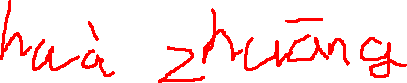 huà zhuāng